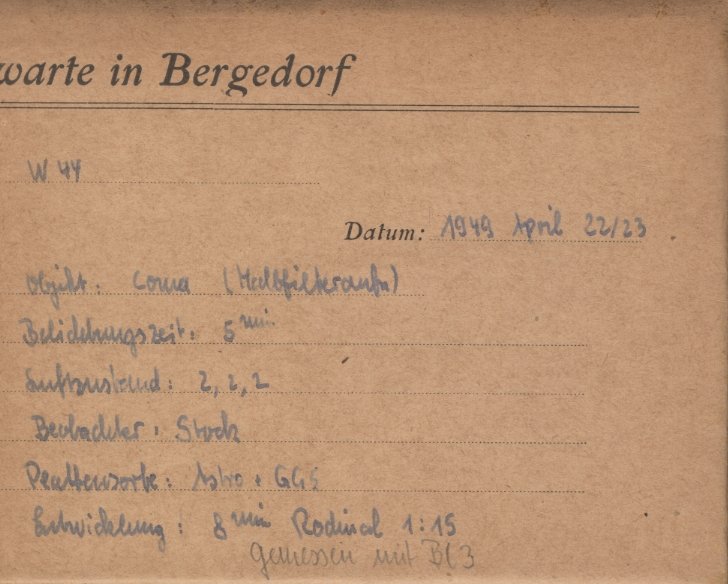 warte in Bergedorf
W 44
Datum: 1949 April 22/23
Objekt: Coma (Halbfilteraufn)
Belichtungszeit: 5 min
Luftzustand: 2, 2, 2
Beobachter: Stock
Plattensorte: Astro + GG5
Entwicklung: 8 min Rodinal 1:15
gemessen mit